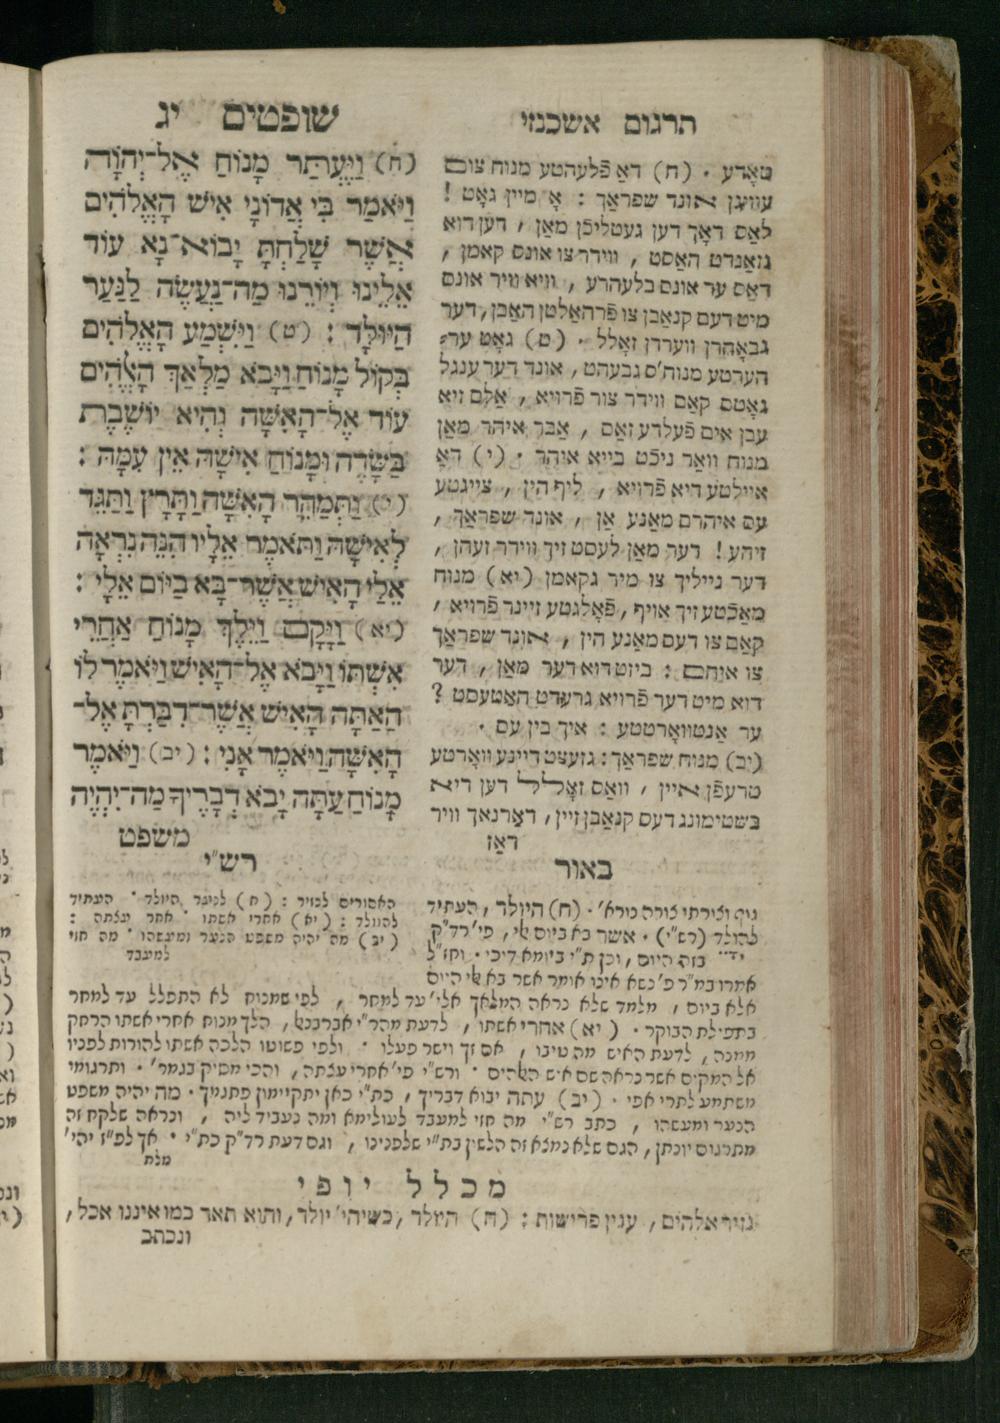 שופטים יג
(ח) וַיֶּעְתַּר מָנוֹחַ אֶל־יְהוָֹה
וַיֹּאמַר בִּי אֲדוֹנָי אִישׁ הָאֱלֹהִים
אֲשֶׁר שָׁלַחְתָּ יָבוֹא־נָא עוֹד
אֵלֵינוּ וְיוֹרֵנוּ מַה־נַּעֲשֶׂה לַנַּעַר
הַיּוּלָּד : (ט) וַיִּשְׁמַע הָאֱלֹהִים
בְּקוֹל מָנוֹחַ וַיָּבֹא מַלְאַךְ הָאֱלֹהִים
עוֹד אֶל־הָאִשָּׁה וְהִיא יוֹשֶׁבֶת
בַּשָּׂדֶה וּמָנוֹחַ אִישָׁהּ אֵין עִמָּהּ :
(י) וַתְּמַהֵר הָאִשָּׁה וַתָּרָץ וַתַּגֵּד
לְאִישָׁהּ וַתֹּאמֶר אֵלָיו הִנֵּה נִרְאָה
אֵלַי הָאִישׁ אֲשֶׁר־בָּא בַיּוֹם אֵלָי :
(יא) וַיָּקָם וַיֵּלֶךְ מָנוֹחַ אַחֲרֵי
אִשְׁתּוֹ וַיָּבֹא אֶל־הָאִישׁ וַיֹּאמֶר לוֹ
הַאַתָּה הָאִישׁ אֲשֶׁר־דִּבַּרְתָּ אֶל־
הָאִשָּׁה וַיֹּאמֶר אָנִי : (יב) וַיֹּאמֶר
מָנוֹחַ עַתָּה יָבֹא דְבָרֶיךָ מַה־יִּהְיֶה
משפט
תרגום אשכנזי
טאָדע · (ח) דאַ פֿלעהטע מנוח צום
עוויגן אונד שפראַך : אָ מיין גאָט !
לאַס דאָך דען געטליכֿן מאַן , דען דוא
גזאַנדט האַסט , ווידר צו אונס קאמן ,
דאַס ער אונס בלעהרע , וויא וויר אונס
מיט דעם קנאַבן צו פֿרהאַלטן האַבן, דער
גבאָהרן ווערדן זאָלל · (ט) גאָט ער־
הערטע מנוח'ס געבעהט, אונד דער ענגל
גאָטס קאַם ווידר צור פֿרויא , אַלס זיא
עבן אים פֿעלדע זאַס , אַבר איהר מאַן
מנוח וואַר ניכֿט בייא איהר · (י) דאַ
איילטע דיא פֿרויא , ליף הין , צייגטע
עס איהרם מאַנע אַן , אונד שפראַך ,
זיהע ! דער מאַן לעסט זיך ווידר זעהן ,
דער נייליך צו מיר געקאמן (יא) מנוח
מאַכֿטע זיך אויף , פֿאָלגטע זיינר פֿרויא ,
קאַם צו דעם מאַנע הין , אונד שפראַך
צו איהם : ביזט דוא דער מאַן , דער
דוא מיט דער פֿרויא גרעדט האַטעסט ?
ער אַנטוואָרטטע : איך בין עס ·
(יב) מנוח שפראַך : געזעצט דיינע וואָרטע
טרעפֿן איין , וואַס זאָלל דען דיא
בשטימונג דעס קנאַבן זיין, דאַרנאַך וויר
דאַז
רש"י
האסורים לנזיר : (ח) לנער היולד · העתיד
להוולד : (יא) אחרי אשתו · אחר עצתה :
(יב) מה יהיה משפט הנער ומעשהו · מה חזי
למעבד
באור
(ח) היולד , העתיד
להולד (רש"י) · אשר בא ביום אלי, פי' רד"ק
בזה היום , וכן ת"י ביומא דיכי · וחז"ל
אמרו במ"ר פ' נשא אינו אומר אשר בא אלי היום
אלא ביום , מלמד שלא נראה המלאך אלי' עד למחר , לפי שמנוח לא התפלל עד למחר
בתפילת הבוקר · (יא) אחרי אשתו , לדעת מהר"י אברבנאל, הלך מנוח אחרי אשתו הרחק
ממנה , לדעת האיש מה טיבו , אם זך וישר פעלו · ולפי פשוטו הלכה אשתו להורות לפניו
אל המקום אשר נראה שם איש האלהים · ורש"י פי' אחרי עצתה , והכי מסיק בגמר' · ותרגומי
משתמע לתרי אפי · (יב) עתה יבוא דבריך , כת"י כאן יתקיימון פתגמך · מה יהיה משפט
הנער ומעשהו , כתב רש"י מה חזי למעבד לעולימא ומה נעביד ליה , ונראה שלקח זה
מתרגום יונתן , הגם שלא נמצא זה הלשון בת"י שלפנינו , וגם דעת רד"ק כת"י · אך לפ"ז יהי'
מלת
מכלל יופי
נזיר אלהים , ענין פרישות : (ח) היולד , כשיהי' יולד , והוא תאר כמו איננו אכל ,
ונכתב